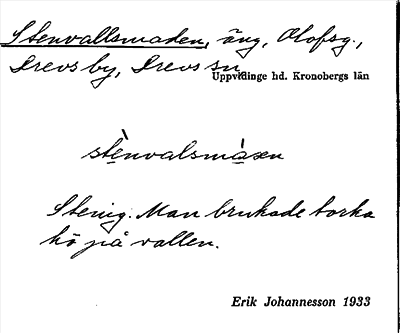 Stenvallsmaden, äng, Olofsg.,
Drevs by, Drevs sn
Uppvidinge hd. Kronobergs län
stènvalsmàsen
Stenig. Man brukade torka
hö på vallen.
Erik Johannesson 1933